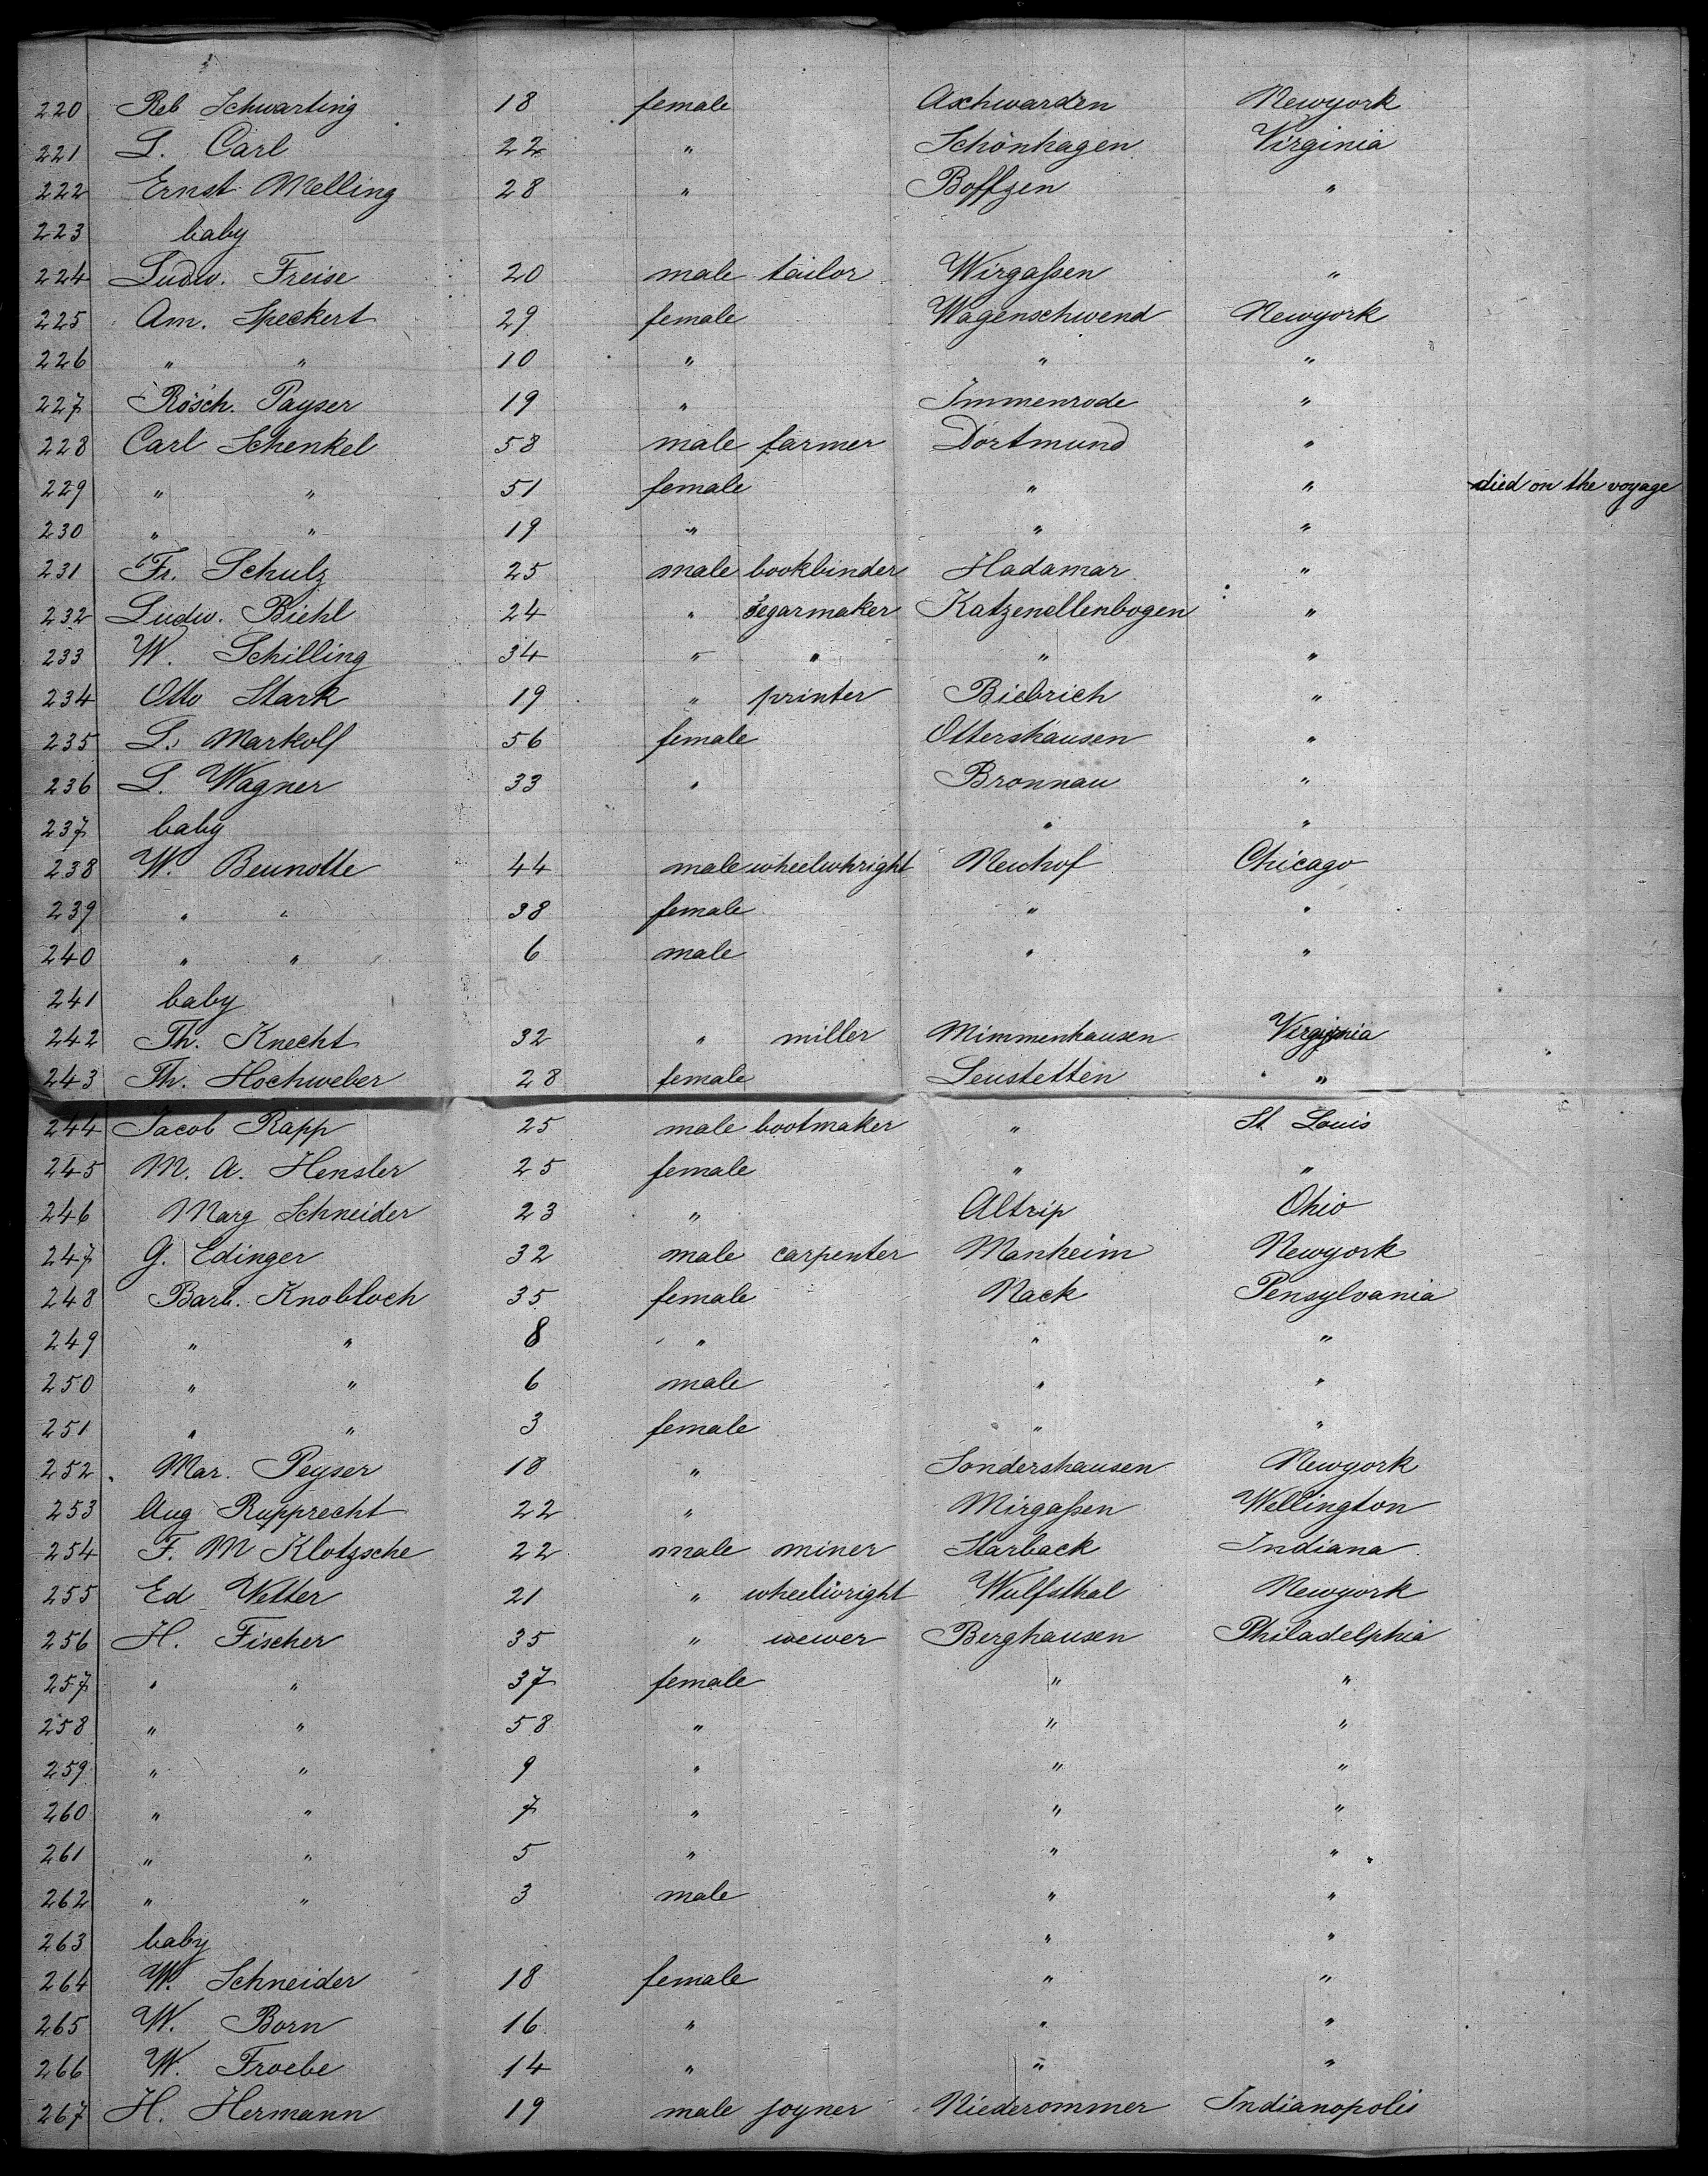 220 Reb Schwarting 18 female Aschwarden Newyork
221 L. Carl 22 " Schönhagen Virginia
222 Ernst Melling 28 " Boffzen "
223 baby
224 Ludw. Freise 20 male tailor Wirgaßen "
225 Am. Speckert 29 female Wagenschwend Newyork
226 " " 10 " " "
227 Rösch. Payser 19 " Immenrode "
228 Carl Schenkel 58 male farmer Dortmund "
229 " " 51 female " " died on the voyage
230 " " 19 " " "
231 Fr. Schulz 25 male bookbinder Hadamar "
232 Ludw. Biehl 24 " segarmaker Katzenellenbogen "
233 W. Schilling 34 " " " "
234 Otto Stark 19 " printer Biebrich "
235 L. Markolf 56 female Ottershausen "
236 L. Wagner 33 " Bronnau "
237 baby " "
238 W. Beunotte 44 male wheelwhright Neuhof Chicago
239 " " 38 female " "
240 " " 6 male " "
241 baby
242 Th. Knecht 32 " miller Mimmenhausen Virginia
243 Th. Hochweber 28 female Leustetten "
244 Jacob Rapp 25 male bootmaker " St Louis
245 M. A. Hensler 25 female " "
246 Marg Schneider 23 " Altrip Ohio
247 G. Edinger 32 male carpenter Manheim Newyork
248 Barb. Knobloch 35 female Nack Pensylvania
249 " " 8 " " "
250 " " 6 male " "
251 " " 3 female " "
252 Mar. Peyser 18 " Sondershausen Newyork
253 Aug Rupprecht 22 " Mirgaßen Wellington
254 F. M Klotzsche 22 male miner Starback Indiana
255 Ed Vetter 21 " wheelwright Wulfsthal Newyork
256 H. Fischer 35 " wewer Berghausen Philadelphia
257 " " 37 female " "
258 " " 58 " " "
259 " " 9 " " "
260 " " 7 " " "
261 " " 5 " " "
262 " " 3 male " "
263 baby " "
264 W. Schneider 18 female " "
265 W. Born 16 " " "
266 W. Froebe 14 " " "
267 H. Hermann 19 male joyner Niederommer Indianopolis